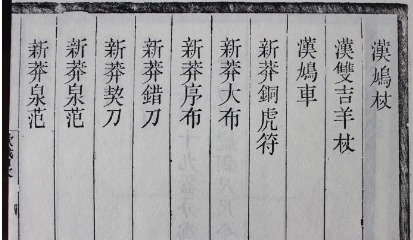 漢鳩杖
漢雙吉羊杖
漢鳩車
新莽銅虎符
新莽大布
新莽序布
新莽錯刀
新莽契刀
新莽泉范
新莽泉范